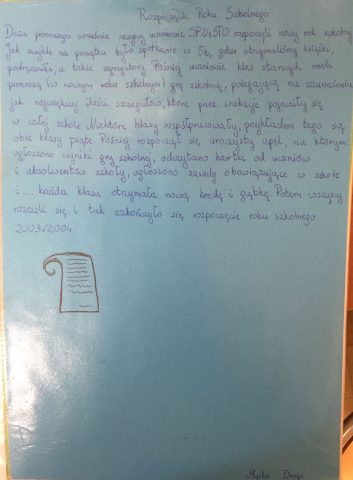 Rozpoczęcie Roku Szkolnego
Dnia pierwszego września wszyscy uczniowie SP24STO rozpoczęli nowy rok szkolny.
Jak zwykle na początku było spotkanie w 56, gdzie otrzymaliśmy książki,
podręczniki, a także segregatory. Później uczniowie klas starszych mieli
pierwszą (w nowym roku szkolnym) grę szkolną, polegającą na zauważeniu
jak największej ilości szczegółów, które przez wakacje pojawiły się
w całej szkole. Niektóre klasy współpracowały, przykładem tego są
obie klasy piąte. Później rozpoczął się uroczysty apel, na którym:
ogłoszono wyniki gry szkolnej, odczytano kartki od uczniów
i absolwentów szkoły, ogłoszono zasady obowiązujące w szkole
i... każda klasa otrzymała nową kredę i gąbkę. Potem wszyscy
rozeszli się i tak zakończyło się rozpoczęcie roku szkolnego
2003/2004.